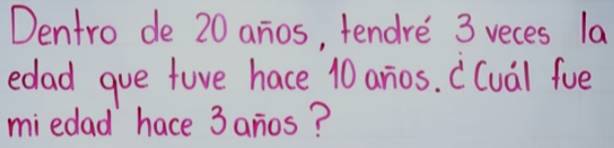 Dentro de 20 años, tendré 3 veces la
edad que tuve hace 10 años. ¿Cuál fue
mi edad hace 3 años?